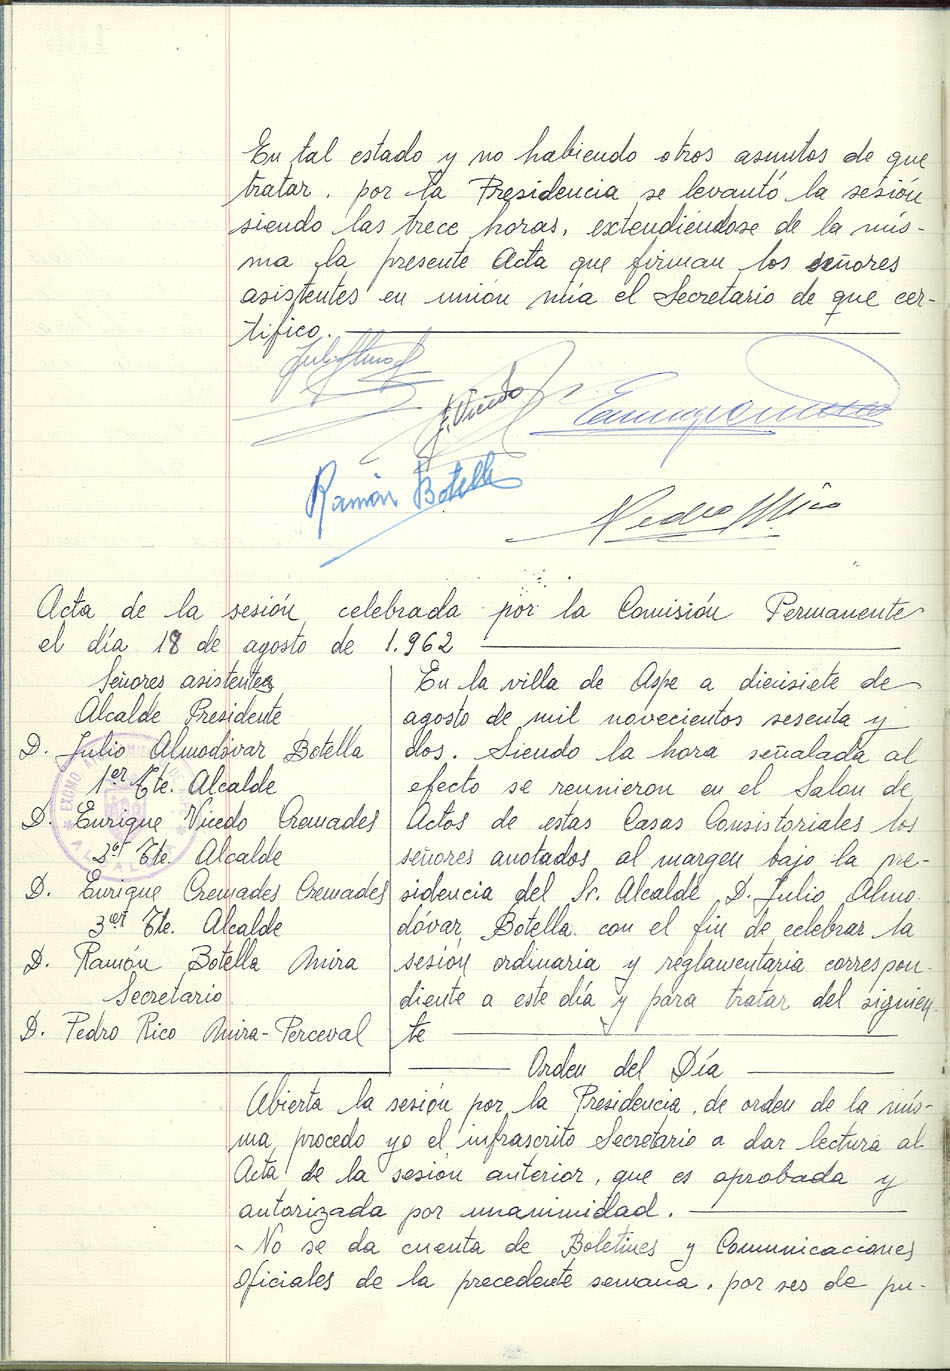 En tal estado y no habiendo otros asuntos de que
tratar, por la Presidencia se levantó la sesión
siendo las trece horas, extendiéndose de la mis-
ma la presente Acta que firman los señores
asistentes en unión mía el Secretario de que cer-
tifico.
E. Vicedo
Ramón Botella
Pedro Rico
Acta de la sesión celebrada por la Comisión Permanente
el día 18 de agosto de 1.962
Señores asistentes
Alcalde Presidente
D. Julio Almodóvar Botella
1er Tte. Alcalde
D. Enrique Vicedo Cremades
2º Tte. Alcalde
D. Enrique Cremades Cremades
3er Tte. Alcalde
D. Ramón Botella Mira
Secretario
D. Pedro Rico Mira-Perceval
ALCALDIA
En la villa de Aspe a diecisiete de
agosto de mil novecientos sesenta y
dos. Siendo la hora señalada al
efecto se reunieron en el Salon de
Actos de estas Casas Consistoriales los
señores anotados al margen bajo la pre-
sidencia del Sr. Alcalde D. Julio Almo-
dóvar Botella con el fin de celebrar la
sesión ordinaria y reglamentaria correspon-
diente a este día y para tratar del siguien-
te
Orden del Día
Abierta la sesión por la Presidencia, de orden de la mis-
ma, procedo yo el infrascrito Secretario a dar lectura al
Acta de la sesión anterior, que es aprobada y
autorizada por unanimidad.
- No se da cuenta de Boletines y Comunicaciones
Oficiales de la precedente semana, por ser de pu-